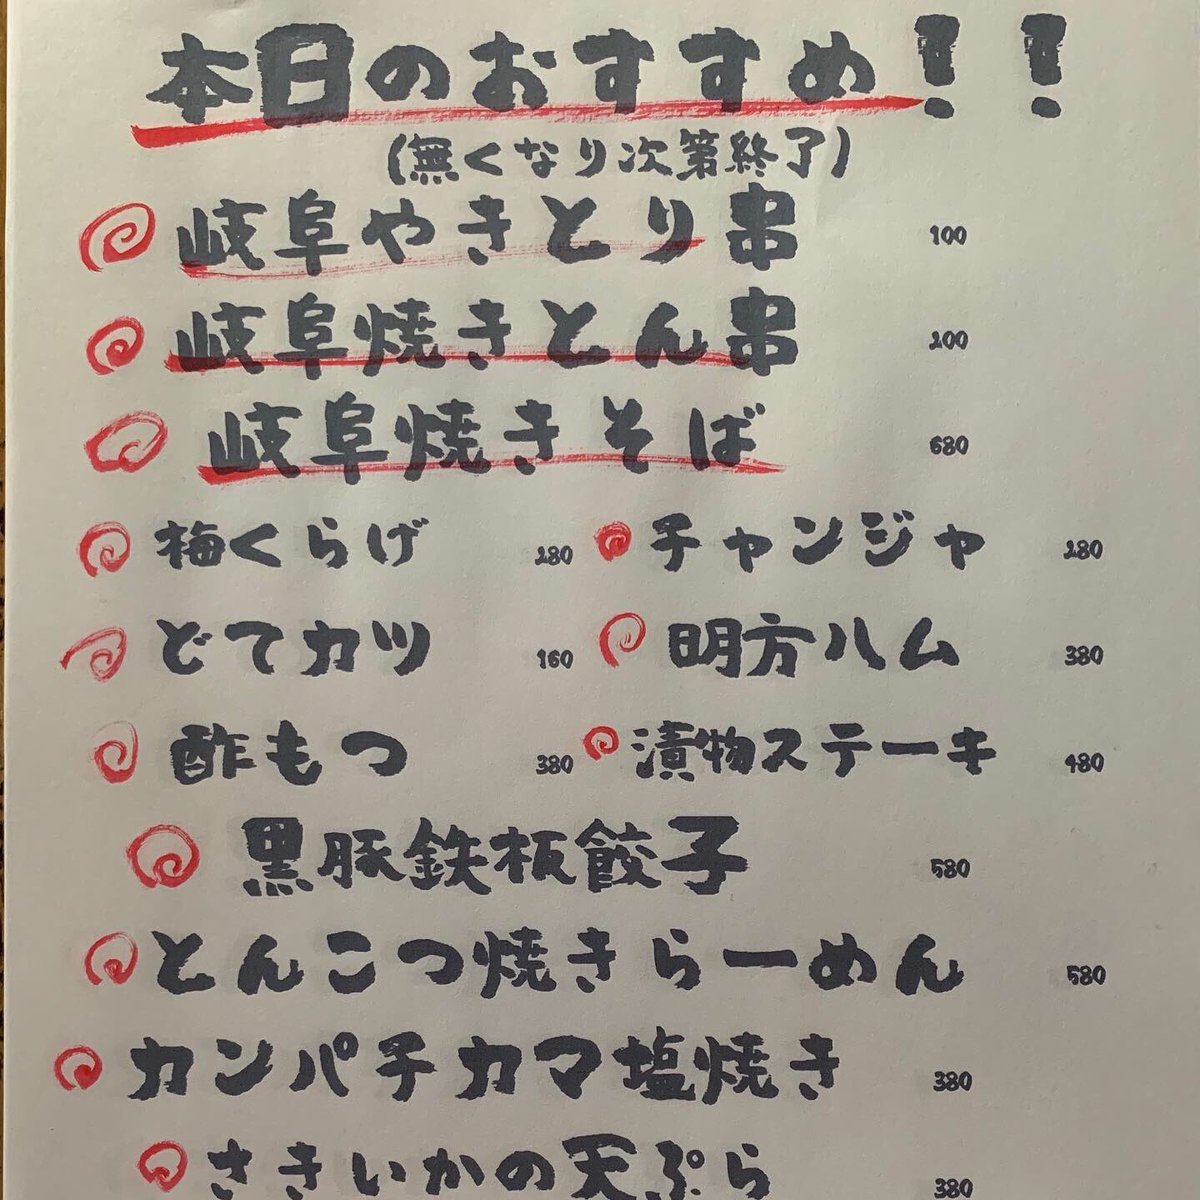 本日のおすすめ!!
(無くなり次第終了)
岐阜やきとり串 100
岐阜焼きとん串 100
岐阜焼きそば 680
梅くらげ 280 チャンジャ 280
どてカツ 160 明方ハム 380
酢もつ 380 漬物ステーキ 480
黒豚鉄板餃子 580
とんこつ焼きらーめん 580
カンパチカマ塩焼き 380
さきいかの天ぷら 380